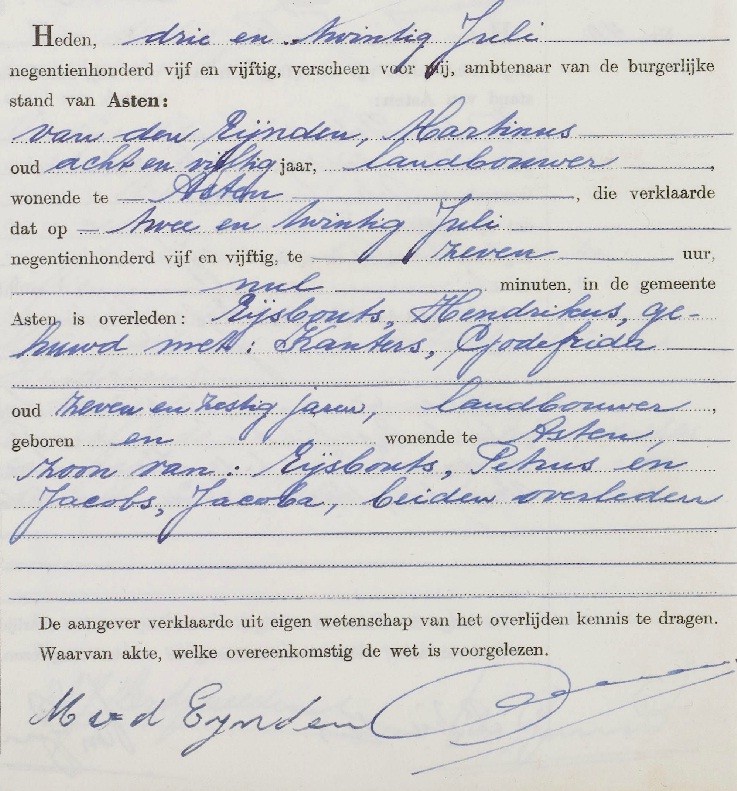 Heden, drie en twintig Juli
negentienhonderd vijf en vijftig, verscheen voor mij, ambtenaar van de burgerlijke
stand van Asten:
van den Eijnden, Martinus
oud acht en vijftig jaar, landbouwer,
wonende te Asten, die verklaarde
dat op twee en twintig Juli
negentienhonderd vijf en vijftig, te zeven uur,
nul minuten, in de gemeente
Asten is overleden: Eijsbouts, Hendrikus, ge-
huwd met: Kanters, Godefrida
oud zeven en zestig jaren, landbouwer,
geboren en wonende te Asten,
zoon van: Eijsbouts, Petrus en
Jacobs, Jacoba, beiden overleden
De aangever verklaarde uit eigen wetenschap van het overlijden kennis te dragen.
Waarvan akte, welke overeenkomstig de wet is voorgelezen.
M v d Eynden